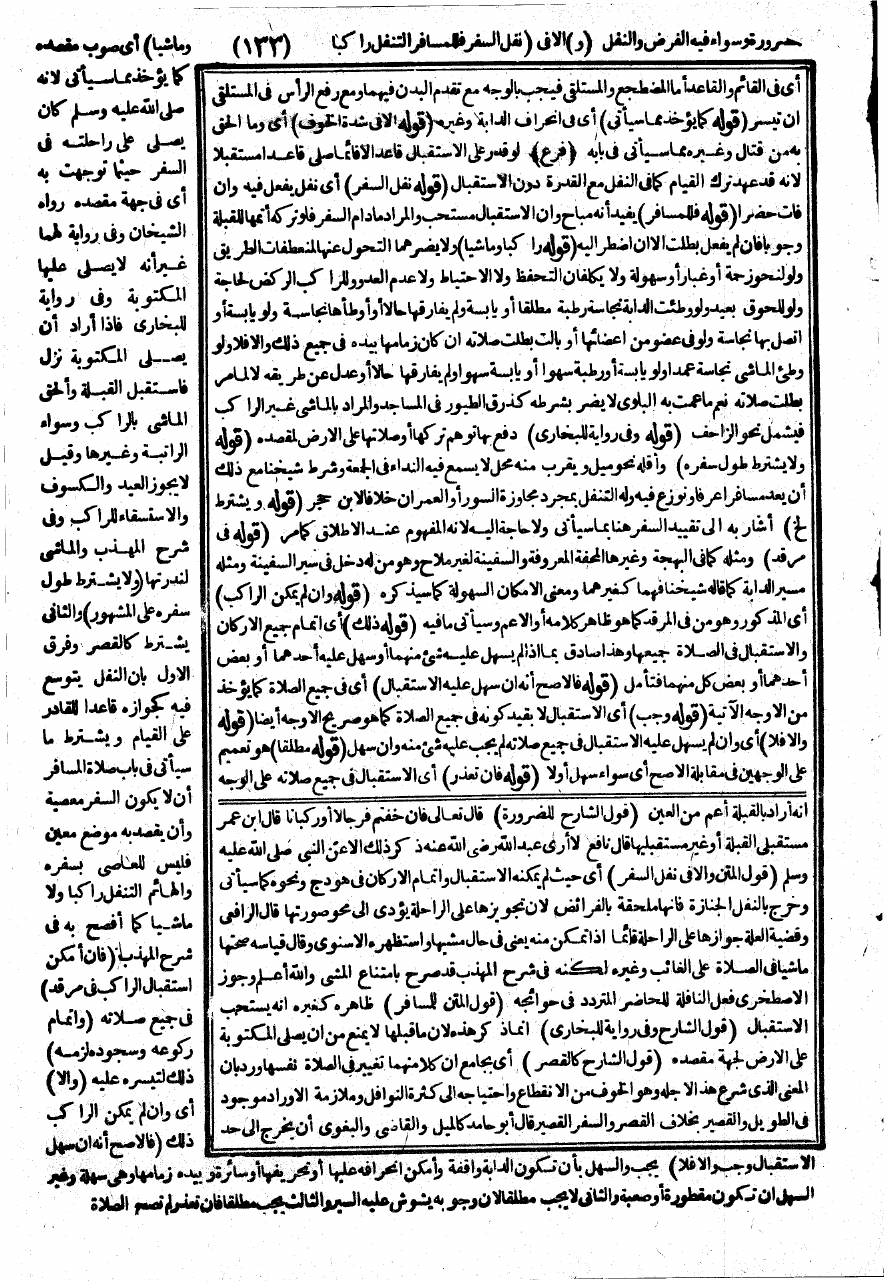 ضرورة وسواء فيه الفرض والنفل (و) الافى (نفل السفر فللمسافر التنفل راكبا (١٣٣) وماشيا) أى صوب مقصده
كما يؤخذ مماسيأتى لانه
صلى الله عليه وسلم كان
يصلى على راحلته فى
السفر حيثما توجهت به
أى فى جهة مقصده رواه
الشيخان وفى رواية لهما
غير أنه لايصلى عليها
المكتوبة وفى رواية
للبخارى فاذا أراد أن
يصلى المكتوبة نزل
فاستقبل القبلة وألحق
الماشى بالراكب وسواء
الراتبة وغيرها وقيل
لايجوز العيد والكسوف
والاستسقاء للراكب وفى
شرح المهذب والماشى
لندرتها (ولايشترط طول
سفره على المشهور) والثانى
يشترط كالقصر وفرق
الاول بان النفل يتوسع
فيه كجوازه قاعدا للقادر
على القيام ويشترط ما
سيأتى فى باب صلاة المسافر
أن لايكون السفر معصية
وأن يقصد به موضع معين
فليس للعاصى بسفره
والهائم التنفل راكبا ولا
ماشيا كما أفصح به فى
شرح المهذب (فان أمكن
استقبال الراكب فى مرقد)
فى جميع صلاته (واتمام
ركوعه وسجوده لزمه)
ذلك لتيسره عليه (والا)
أى وان لم يمكن الراكب
ذلك (فالاصح أنه ان سهل
الاستقبال وجب والافلا) يجب والسهل بأن تكون الدابة واقفة وأمكن انحرافه عليها أو تحريفها أو سائرة وبيده زمامها وهى سهلة وغير
السهل ان تكون مقطورة أو صعبة والثانى لايجب مطلقا لان وجوبه يشوش عليه السير والثالث يجب مطلقا فان تعذر لم تصح الصلاة
أى فى القائم والقاعد أما المضطجع والمستلقى فيجب بالوجه مع تقدم البدن فيهما ومع رفع الرأس فى المستلقى
ان تيسر (قوله كما يؤخذ مماسيأتى) أى فى انحراف الدابة وغيره (قوله الافى شدة الخوف) أى وما الحق
به من قتال وغيره مماسيأتى فى بابه (فرع) لو قدر على الاستقبال قاعدا لاقائما صلى قاعدا مستقبلا
لانه قد عهد ترك القيام كما فى النفل مع القدرة دون الاستقبال (قوله نفل السفر) أى نفل يفعل فيه وان
فات حضرا (قوله فللمسافر) يفيد أنه مباح وان الاستقبال مستحب والمراد مادام السفر فلو تركه أتمها للقبلة
وجوبا فان لم يفعل بطلت الا ان اضطر اليه (قوله راكبا وماشيا) ولا يضرهما التحول عنها لمنعطفات الطريق
ولو لنحو زحمة أو غبار أو سهولة ولا يكلفان التحفظ ولا الاحتياط ولا عدم العدو وللراكب الركض لحاجة
ولو للحوق بعيد ولو وطئت الدابة نجاسة رطبة مطلقا أو يابسة ولم يفارقها حالا أو أوطأها نجاسة ولو يابسة أو
اتصل بها نجاسة ولو فى عضو من اعضائها أو بالت بطلت صلاته ان كان زمامها بيده فى جميع ذلك والافلا ولو
وطئ الماشى نجاسة عمدا ولو يابسة أو رطبة سهوا أو يابسة سهوا ولم يفارقها حالا أو عدل عن طريقه لالمامر
بطلت صلاته نعم ماعمت به البلوى لا يضر بشرطه كذرق الطيور فى المساجد والمراد بالماشى غير الراكب
فيشمل نحو الزاحف (قوله وفى رواية للبخارى) دفع به توهم تركها أو صلاتها على الارض لمقصده (قوله
ولايشترط طول سفره) وأقله نحو ميل ويقرب منه محل لا يسمع فيه النداء فى الجمعة وشرط شيخنا مع ذلك
أن يعد مسافرا عرفا ونوزع فيه وله التنفل بمجرد مجاوزة السور أو العمران خلافا لابن حجر (قوله ويشترط
الخ) أشار به الى تقييد السفر هنا بماسيأتى ولا حاجة اليه لانه المفهوم عند الاطلاق كما مر (قوله فى
مرقد) ومثله كما فى البهجة وغيرها المحفة المعروفة والسفينة لغير ملاح وهو من له دخل فى سير السفينة ومثله
مسير الدابة كما قاله شيخنا فهما كغيرهما ومعنى الامكان السهولة كما سيذكره (قوله وان لم يمكن الراكب)
أى المذكور وهو من فى المرقد كما هو ظاهر كلامه أو الاعم وسيأتى مافيه (قوله ذلك) أى اتمام جميع الاركان
والاستقبال فى الصلاة جميعها وهذا صادق بما اذا لم يسهل عليه شئ منهما أو سهل عليه أحدهما أو بعض
أحدهما أو بعض كل منهما فتأمل (قوله فالاصح أنه ان سهل عليه الاستقبال) أى فى جميع الصلاة كما يؤخذ
من الاوجه الآتية (قوله وجب) أى الاستقبال لا بقيد كونه فى جميع الصلاة كما هو صريح الاوجه أيضا (قوله
والافلا) أى وان لم يسهل عليه الاستقبال فى جميع صلاته لم يجب عليه شئ منه وان سهل (قوله مطلقا) هو تعميم
على الوجهين فى مقابلة الاصح أى سواء سهل أولا (قوله فان تعذر) أى الاستقبال فى جميع صلاته على الوجه
انه أراد بالقبلة أعم من العين (قول الشارح للضرورة) قال تعالى فان خفتم فرجالا أو ركبانا قال ابن عمر
مستقبلى القبلة أو غير مستقبليها قال نافع لا أرى عبد الله رضى الله عنه ذكر ذلك الا عن النبى صلى الله عليه
وسلم (قول المتن والافى نفل السفر) أى حيث لم يمكنه الاستقبال واتمام الاركان فى هودج ونحوه كما سيأتى
وخرج بالنفل الجنازة فانها ملحقة بالفرائض لان تجويزها على الراحلة يؤدى الى محو صورتها قال الرافعى
وقضية العلة جوازها على الراحلة قائما اذا تمكن منه يعنى فى حال مشيها واستظهره الاسنوى وقال قياسه صحتها
ماشيا فى الصلاة على الغائب وغيره لكنه فى شرح المهذب قد صرح بامتناع المشى والله أعلم وجوز
الاصطخرى فعل النافلة للحاضر المتردد فى حوائجه (قول المتن للمسافر) ظاهره كغيره انه يستحب
الاستقبال (قول الشارح وفى رواية للبخارى) انما ذكر هذه لان ماقبلها لا يمنع من ان يصلى المكتوبة
على الارض لجهة مقصده (قول الشارح كالقصر) أى بجامع ان كلا منهما تغيير فى الصلاة نفسها ورد بان
المعنى الذى شرع هذا لاجله وهو الخوف من الانقطاع واحتياجه الى كثرة النوافل وملازمة الاوراد موجود
فى الطويل والقصير بخلاف القصر والسفر القصير قال أبو حامد كالميل والقاضى والبغوى أن يخرج الى حد